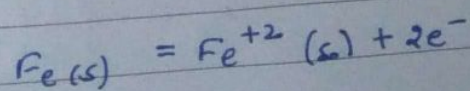 Fe(s) = Fe⁺² (s) + 2e⁻